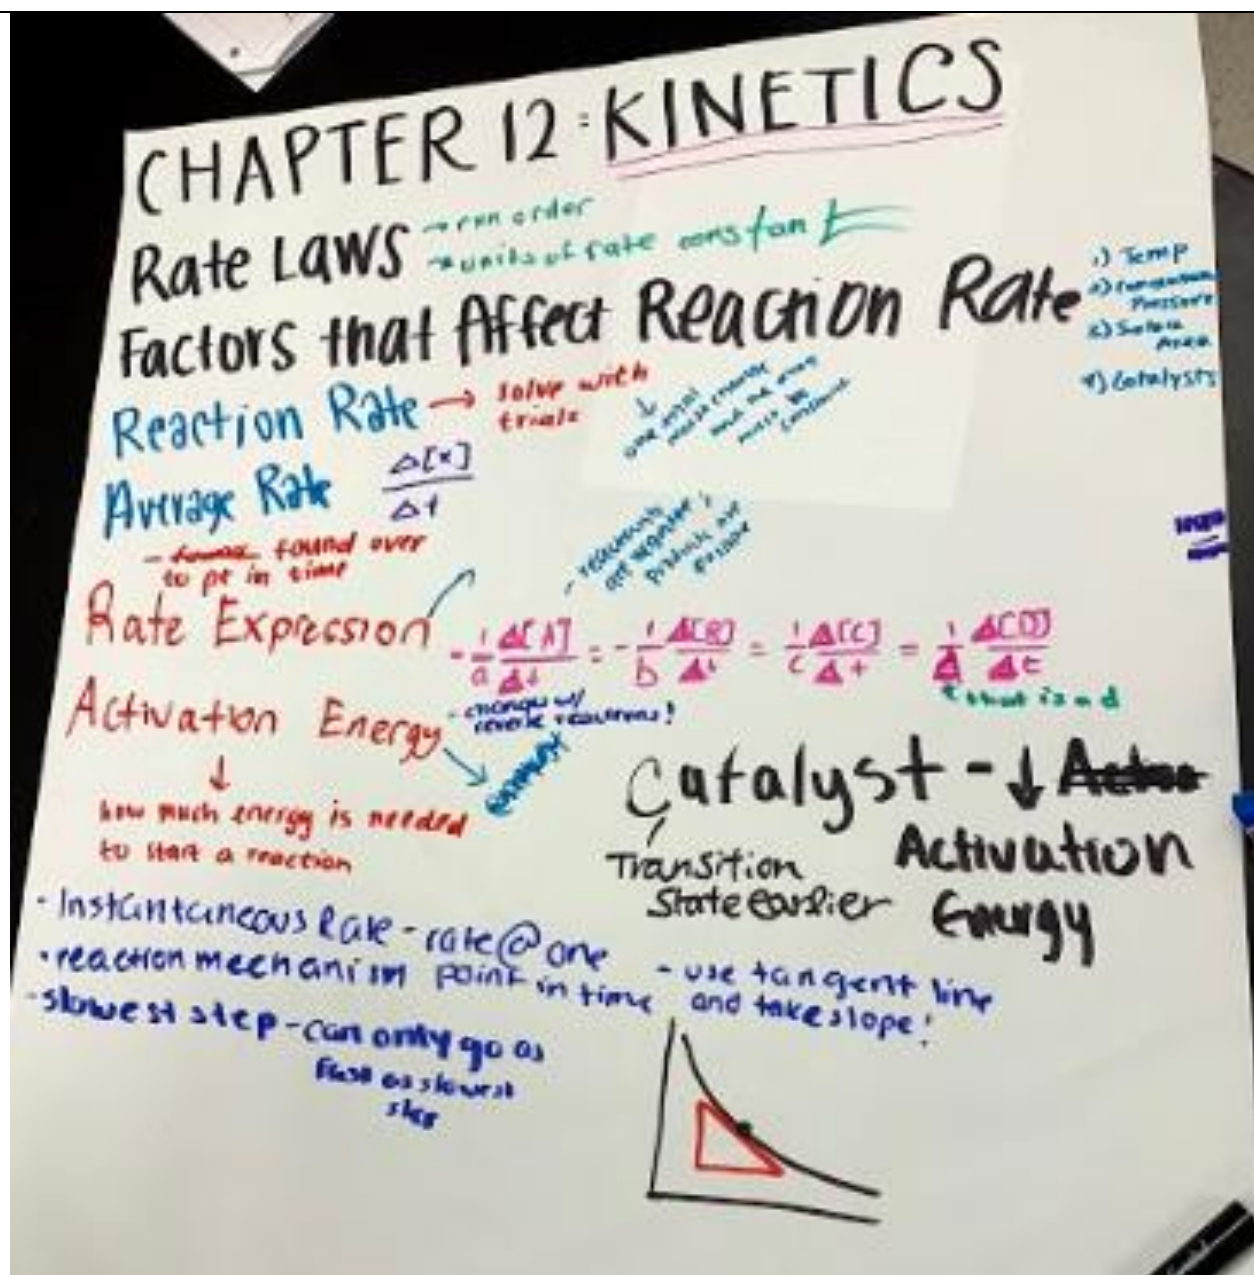 CHAPTER 12: KINETICS
Rate Laws → rxn order
→ units of rate constant
Factors that Affect Reaction Rate
1) Temp
Pressure
Area
4) Catalysts
Reaction Rate → solve with
trials
Average Rate Δ[x]
Δt
- found over
to pt in time
- reactants
are negative,
products are
Rate Expression
- 1/a Δ[A]/Δt = - 1/b Δ[B]/Δt = 1/c Δ[C]/Δt = 1/Δ Δ[D]/Δt
that is a d
Activation Energy
- changes w/
reverse reactions!
↓
how much energy is needed
to start a reaction
Catalyst - ↓
Activation
Energy
Transition
State earlier
- Instantaneous Rate - rate @ one
point in time
- use tangent line
and take slope!
• reaction mechanism
- slowest step - can only go as
fast as slowest
step